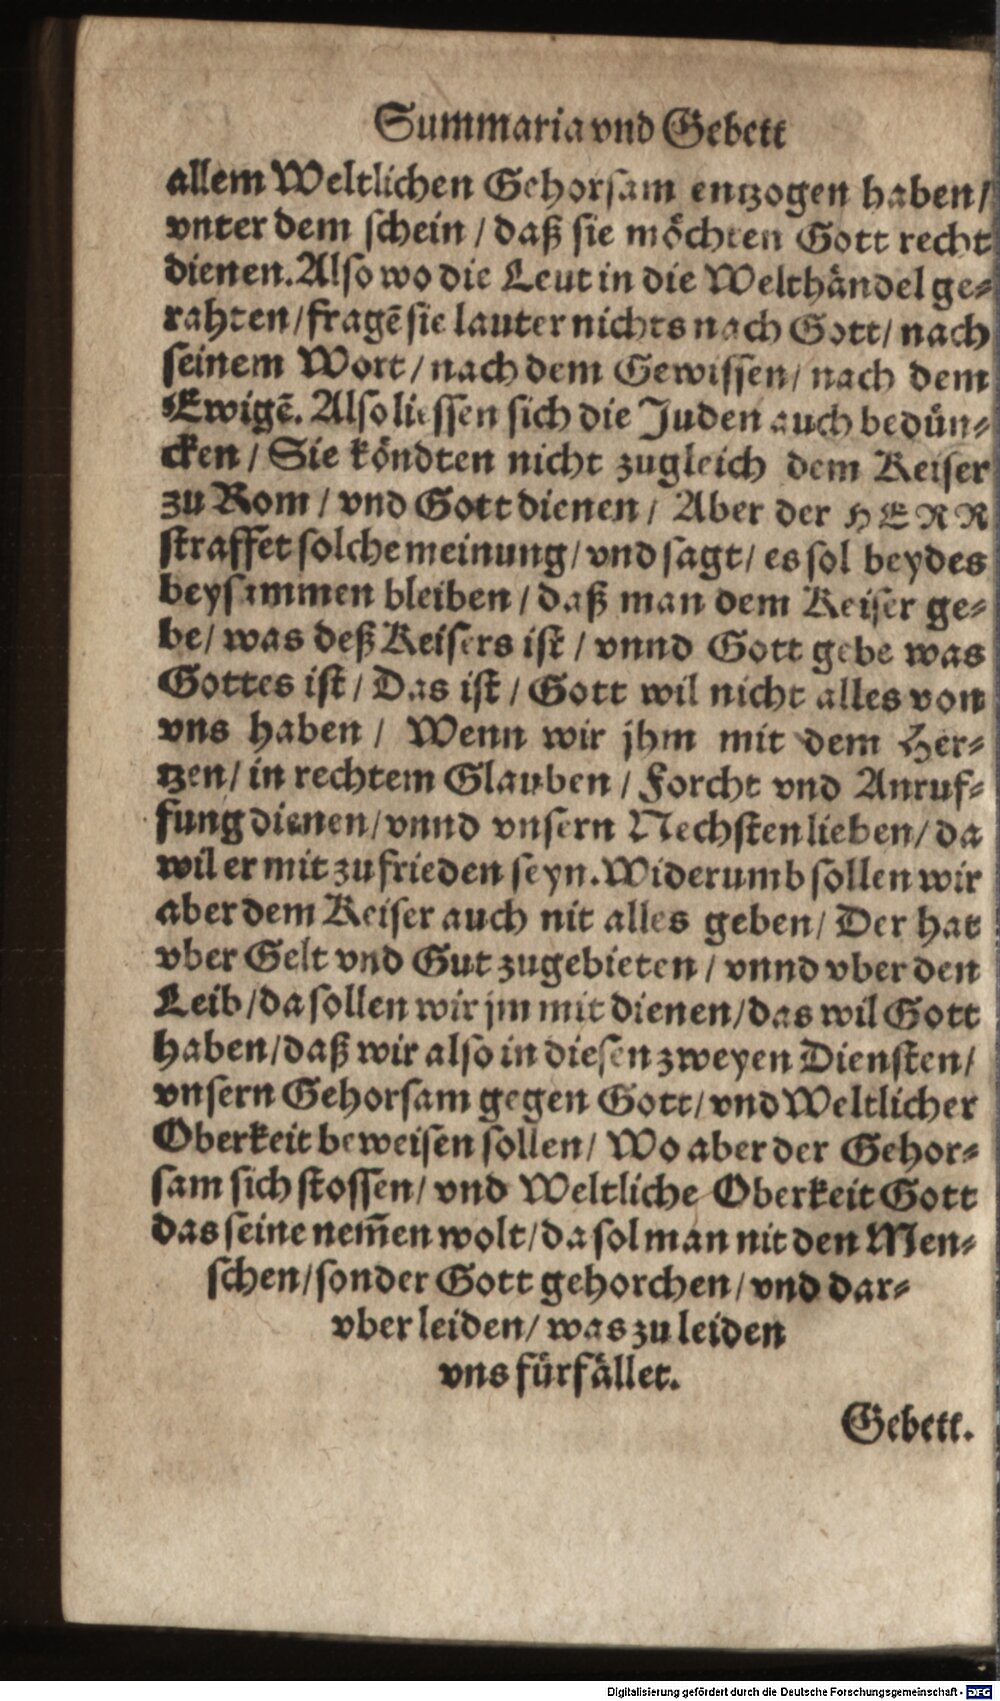 Summaria vnd Gebett
allem Weltlichen Gehorsam entzogen haben/
vnter dem schein / daß sie möchten Gott recht
dienen. Also wo die Leut in die Welthändel ge-
rahten / fragẽ sie lauter nichts nach Gott / nach
seinem Wort / nach dem Gewissen / nach dem
Ewigẽ. Also liessen sich die Juden auch bedün-
cken / Sie köndten nicht zugleich dem Keiser
zu Rom / vnd Gott dienen / Aber der HERR
straffet solche meinung / vnd sagt / es sol beydes
beysammen bleiben / daß man dem Keiser ge-
be / was deß Keisers ist / vnnd Gott gebe was
Gottes ist / Das ist / Gott wil nicht alles von
vns haben / Wenn wir jhm mit dem Her-
tzen / in rechtem Glauben / Forcht vnd Anruf-
fung dienen / vnnd vnsern Nechsten lieben / da
wil er mit zu frieden seyn. Widerumb sollen wir
aber dem Keiser auch nit alles geben / Der hat
vber Gelt vnd Gut zugebieten / vnnd vber den
Leib / da sollen wir jm mit dienen / das wil Gott
haben / daß wir also in diesen zweyen Diensten /
vnsern Gehorsam gegen Gott / vnd Weltlicher
Oberkeit beweisen sollen / Wo aber der Gehor-
sam sich stossen / vnd Weltliche Oberkeit Gott
das seine nem̃en wolt / da sol man nit den Men-
schen / sonder Gott gehorchen / vnd dar-
vber leiden / was zu leiden
vns fürfället.
Gebett.
Digitalisierung gefördert durch die Deutsche Forschungsgemeinschaft - DFG